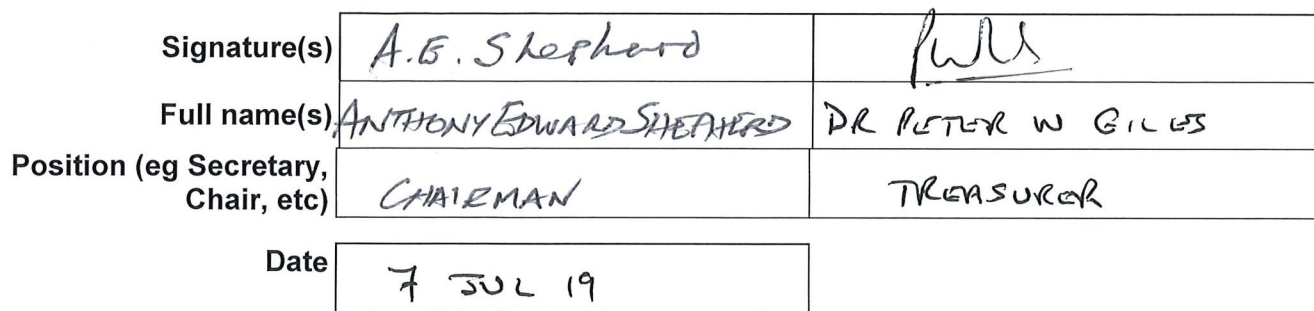 Signature(s) A.E. Shepherd
Full name(s) ANTHONY EDWARD SHEPHERD DR PETER W GILES
Position (eg Secretary,
Chair, etc) CHAIRMAN TREASURER
Date 7 JUL 19